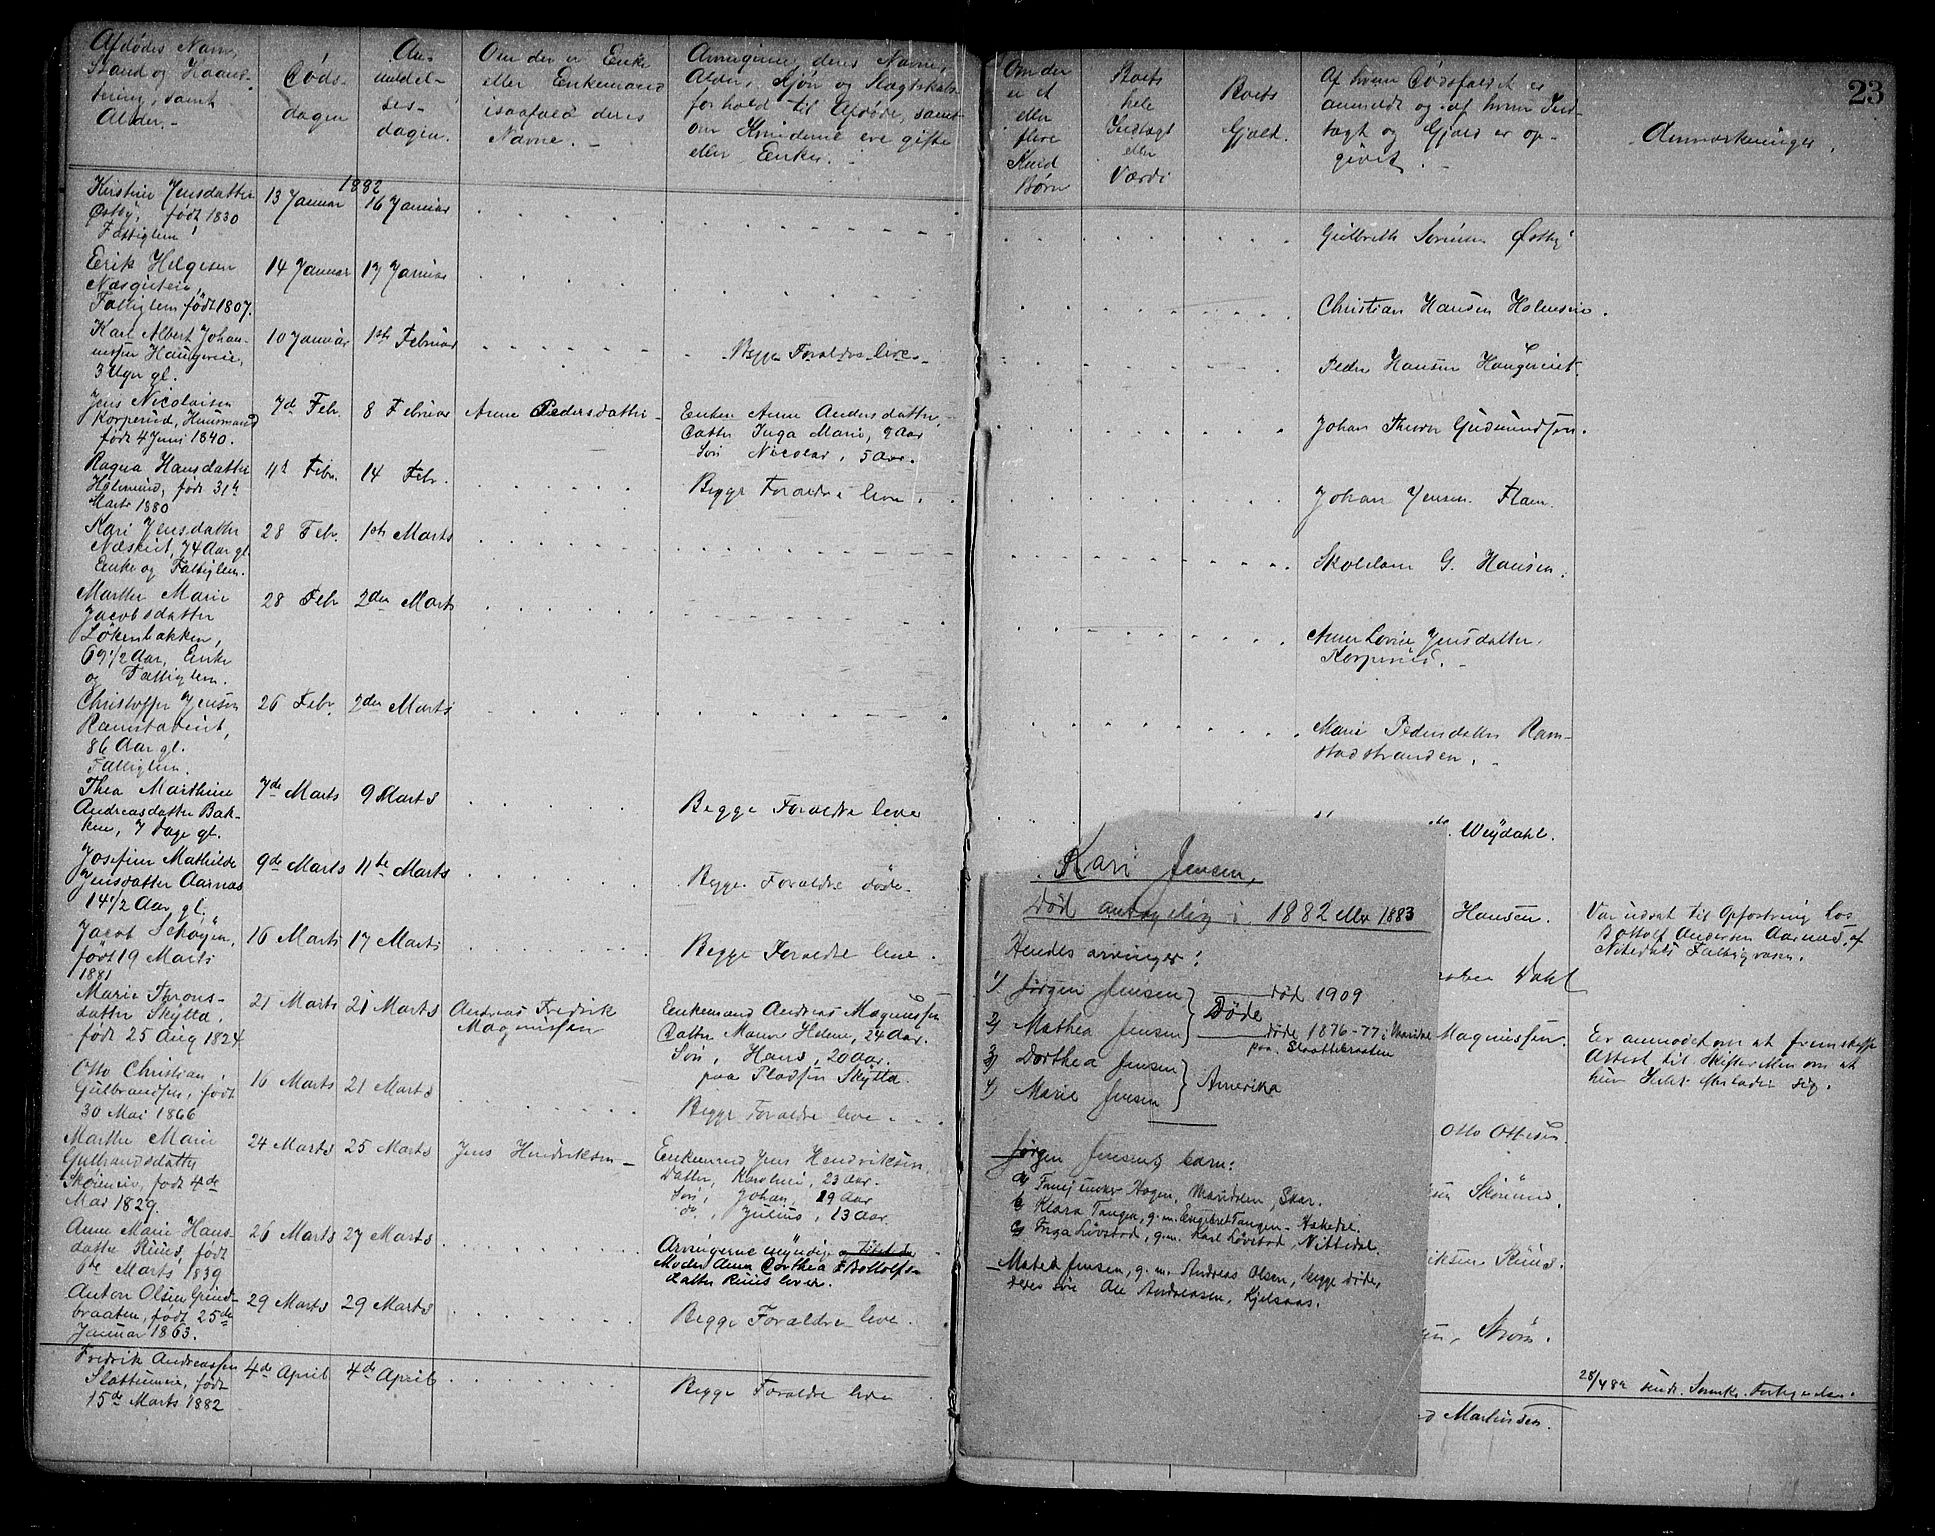 Afdødes Navn,
Stand og Haand-
tering, samt
Alder.-
Døds-
dagen
An-
meldel-
ses-
dagen.
Om der er Enke
eller Enkemand
isaafald deres
Navne. -
Arvingerne, deres Navne,
Alder, Kjøn og Slægtskabs-
forhold til Afdøde, samt
om Kvinderne ere gifte
eller Enker. -
Om der
er et
eller
flere
Kuld
Børn
Boets
hele
Indtægt
eller
Værdi
Boets
Gjæld.
Af hvem Dødsfaldet er
anmeldt og af hvem Ind-
tægt og Gjæld er op-
givet. -
Anmærkninger.
23
1882
Kirstine Jensdatter
Østby, født 1830
Fattiglem
13 Januar
16 Januar
Gulbreth Sørensen Østby
Erik Helgesen
Næsguteie,
Fattiglem født 1807.
14 Januar
17 Januar
Christian Hansen Holmseie.
Karl Albert Johan-
nessen Haugereie,
3 Uger gl.
10 Januar
1ste Februar
Begge Forældre leve.
Peder Hansen Haugereiet.
Jens Nicolaisen
Korperud, Huusmand
født 4 Juni 1840.
7de Febr.
8 Februar
Anne Pedersdatter
Enken Anne Andersdatter,
Datter Inga Marie, 9 Aar
Søn Nicolai, 5 Aar.
Johan Thorer Gudmundsen.
Ragna Hansdatter
Holmseid, født 31te
Marts 1880
4de Febr.
14 Febr.
Begge Forældre leve.
Johan Jensen Flam.
Kari Jensdatter
Næseiet, 74 Aar gl.
Enke og Fattiglem.
28 Febr.
1ste Marts
Skolelærer G. Hansen.
Marthe Marie
Jacobsdatter
Løkenbakken,
69 1/2 Aar, Enke
og Fattiglem.
28 Febr
2den Marts
Anne Lovise Jensdatter
Korperud. -
Christoffer Jensen
Ramstadeiet,
86 Aar gl.
Fattiglem.
26 Febr.
7den Marts
Marie Pedersdatter Ram-
stadstranden.
Thea Marthine
Andreasdatter Bak-
ken, 7 Dage gl.
7de Marts
9 Marts
Begge Forældre leve
Weydahl.
Josefine Mathilde
Jensdatter Aarnæs
14 1/2 Aar gl.
9de Marts
11te Marts
Begge Forældre døde.
Hansen.
Var udsat til Opfostring hos
Bottolf Andersen Aarnæs, af
Nitedals Fattigvæsen.
Jacob Schøyen,
født 19 Marts
1881
16 Marts
17 Marts
Begge Forældre leve.
Dahl
Marie Throns-
datter Skytta,
født 25 Aug 1824
21 Marts
21 Marts
Andreas Fredrik
Magnussen
Enkemand Andreas Magnussen
Datter Maren Helene, 24 Aar.
Søn, Hans, 20 Aar.
paa Pladsen Skytta.
Magnussen.
Er anmodet om at fremskaffe
Attest til Skifteretten om at
hun Intet efterlader sig.
Otto Christian
Gulbrandsen, født
30 Mai 1866
16 Marts
21 Marts
Begge Forældre leve.
Otto Ottesen.
Marthe Marie
Gulbrandsdatter
Skøieneie, født 4de
Mai 1829.
24 Marts
25 Marts
Jens Hendriksen
Enkemand Jens Hendriksen.
Datter, Karoline, 23 Aar.
Søn, Johan, 19 Aar
do., Julius, 13 Aar.
Anne Marie Hans-
datter Ruud, født
Marts 1839
26 Marts
27 Marts
Arvingerne myndige
Moder Anne Dorthea Bottolfs-
datter Ruud lever.
Ruud.
Anton Olsen Grind-
braaten, født 25de
Januar 1863.
29 Marts
29 Marts
Begge Forældre leve.
Fredrik Andreassen
Slattumeie, født
15de Marts 1882
4de April
4de April
Begge Forældre leve
28/4 82
Martinsen.
Kari Jensen,
Død antagelig i 1882 eller 1883
Hendes arvinger:
1) Jørgen Jensen } død 1909
2) Mathea Jensen } Døde døde 1876-77 i Maridal
paa Slaattebraaten
3) Dorthea Jensen
4) Marie Jensen } Amerika
Jørgen Jensens barn:
a) enker Hagen, Maridalen, Skar.
b) Klara Tangen, g.m. Engebret Tangen - Hakedal.
c) Inga Løvstad, g.m. Karl Løvstad, Nittedal.
Matea Jensen, g.m. Andreas Olsen, begge døde,
deres søn Ole Andreassen, Kjelsaas.